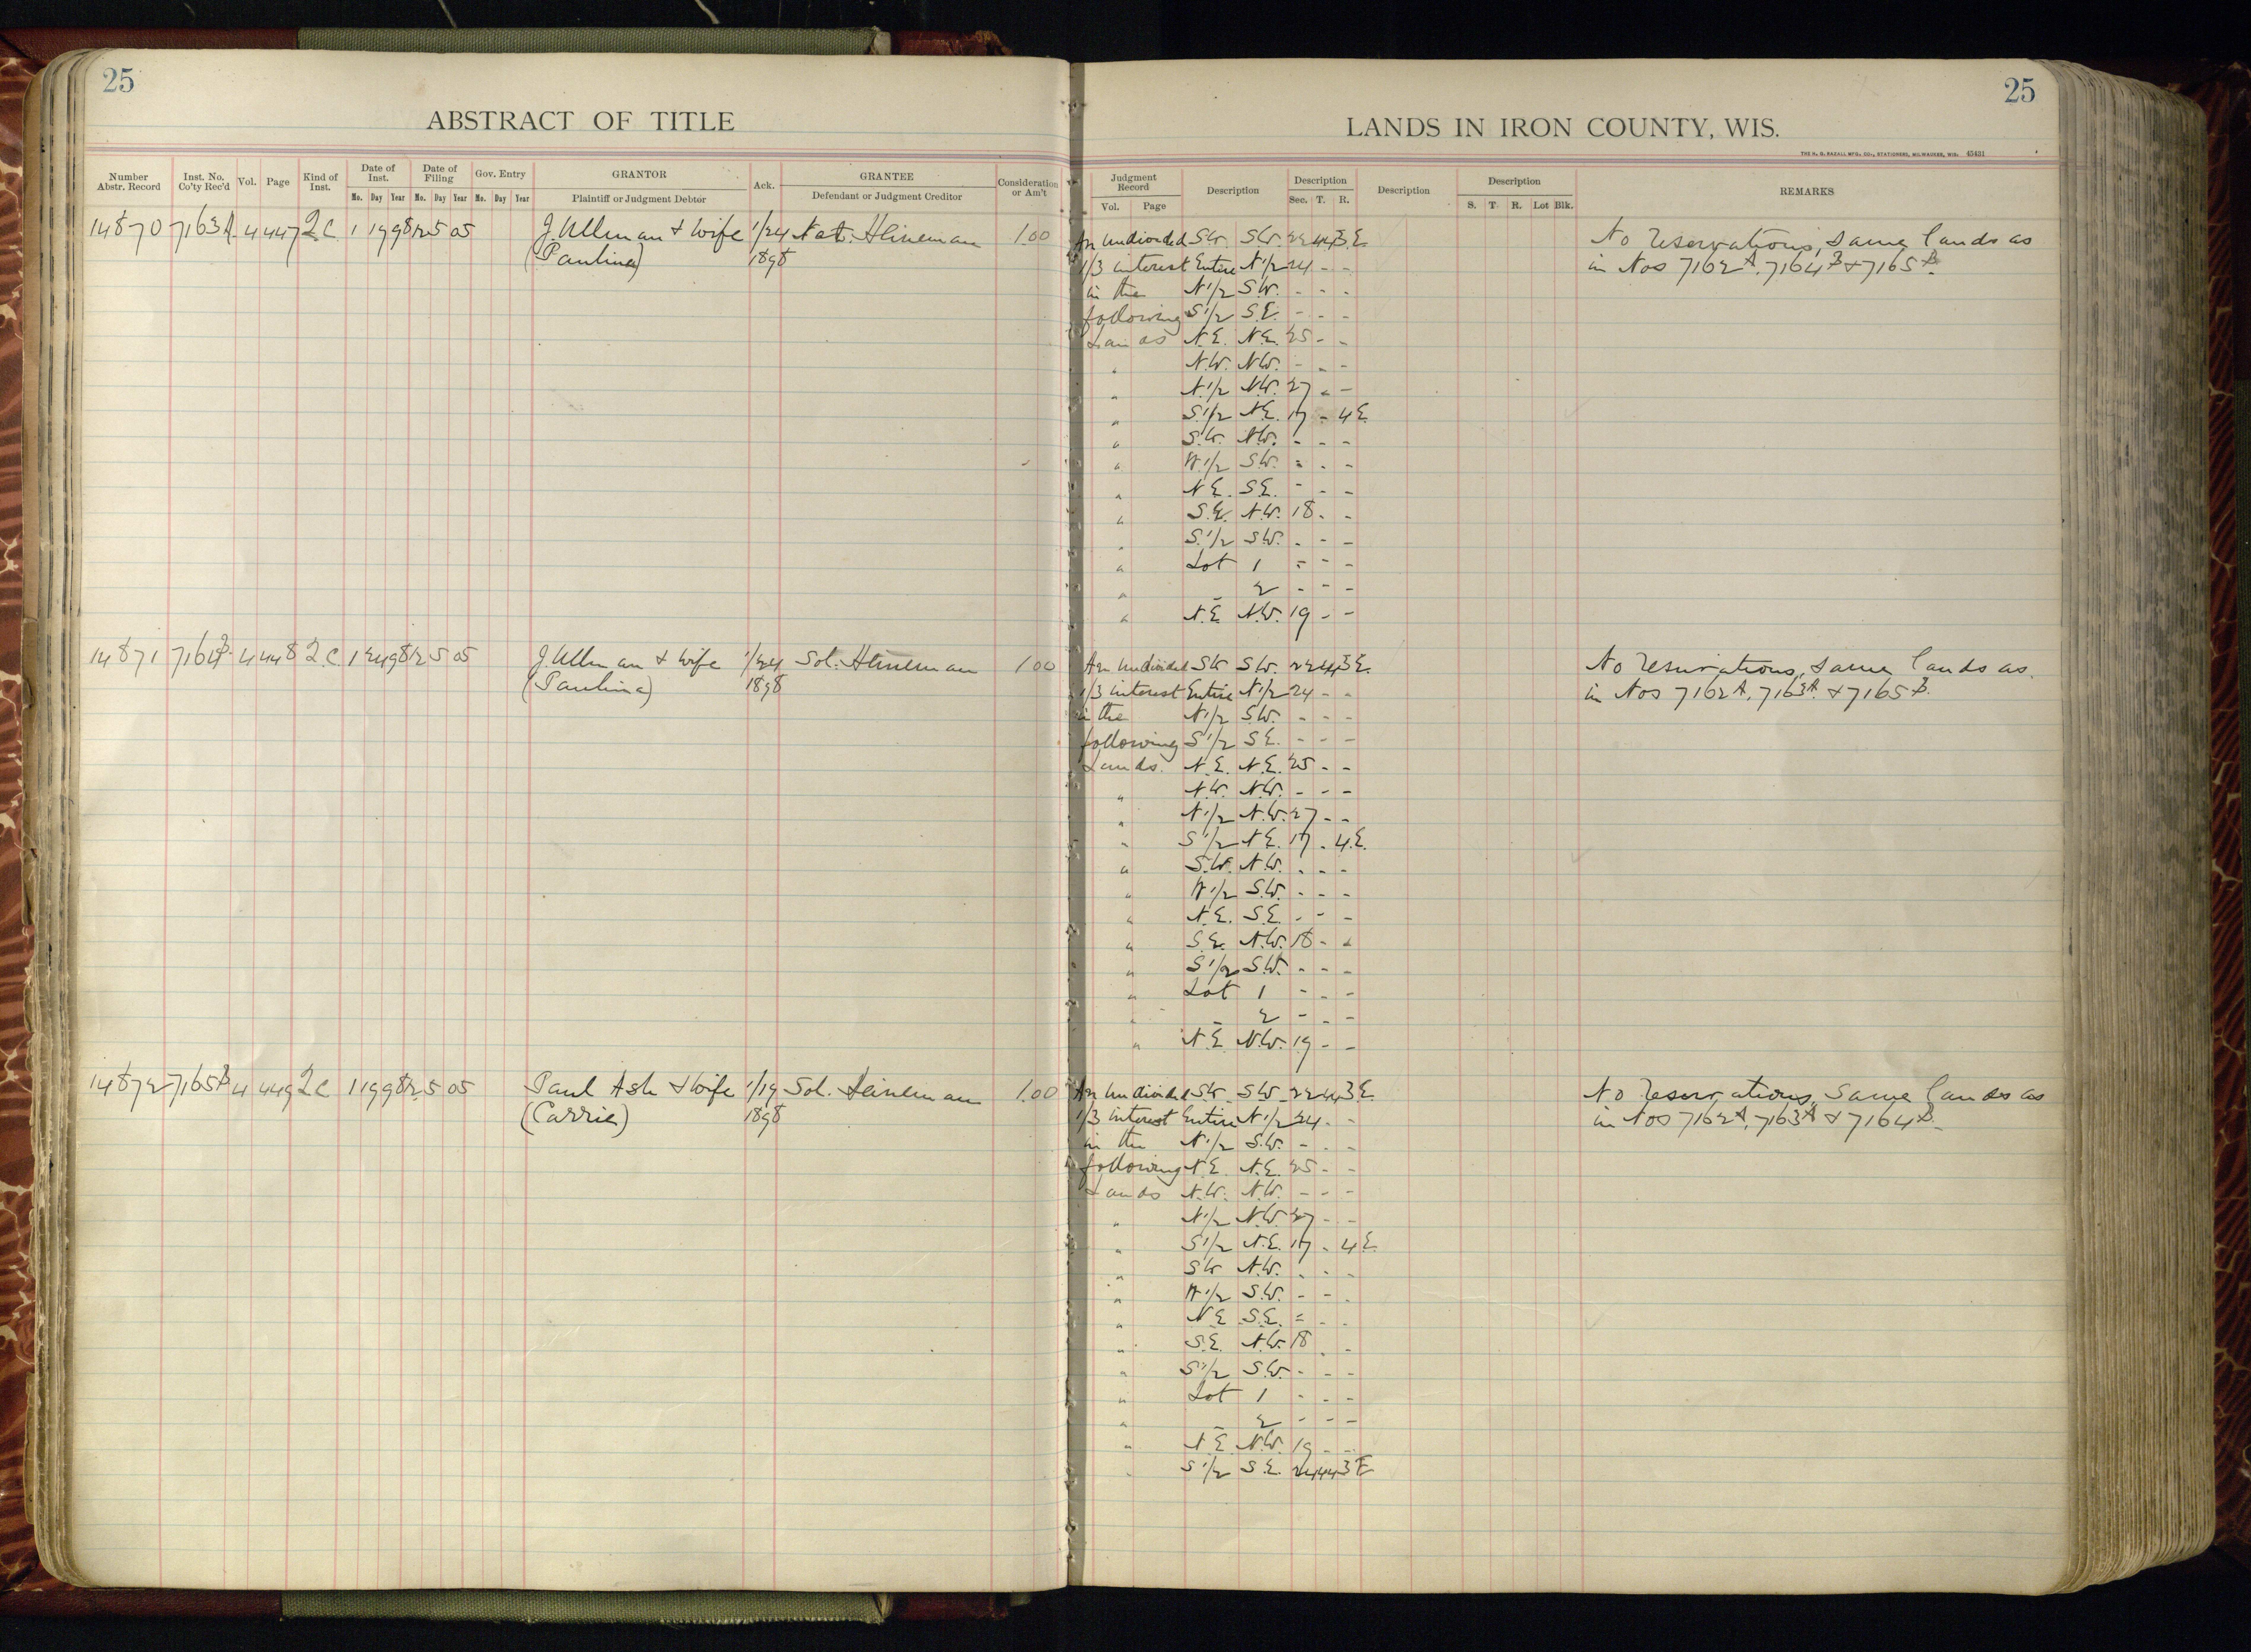 25
ABSTRACT OF TITLE
Number Abstr. Record | Inst. No. Co'ty Rec'd | Vol. | Page | Kind of Inst. | Date of Inst. Mo. Day Year | Date of Filing Mo. Day Year | Gov. Entry Mo. Day Year | GRANTOR Plaintiff or Judgment Debtor | Ack. | GRANTEE Defendant or Judgment Creditor | Consideration or Am't
14870 7163A. 4 447 Q.C. 1 19 98 12 5 05 J. Ullman & Wife 1/24 Nat. Heineman 1.00
(Paulina) 1898
14871 7164B. 4 448 Q.C. 1 24 98 12 5 05 J. Ullman & Wife 1/24 Sol. Heineman 1.00
(Paulina) 1898
14872 7165B 4 449 Q.C 1 19 98 12 5 05 Paul Ash & Wife 1/19 Sol. Heineman 1.00
(Carrie) 1898
25
LANDS IN IRON COUNTY, WIS.
THE H. G. RAZALL MFG. CO., STATIONERS, MILWAUKEE, WIS. 45431
Judgment Record Vol. Page | Description | Description Sec. T. R. | Description | Description S. T. R. Lot Blk. | REMARKS
An undivided S.W. S.W. 22 44 3 E. No reservations, same lands as
1/3 interest Entire N 1/2 24 - - in Nos 7162A, 7164B & 7165B.
in the N 1/2 S.W. - - -
following S 1/2 S.E. - - -
Lands N.E. N.E. 25 - -
" N.W. N.W. - - -
" N 1/2 N.W. 27 - -
" S 1/2 N.E. 17 - 4 E.
" S.W. N.W. - - -
" W 1/2 S.W. - - -
" N.E. S.E. - - -
" S.E. N.W. 18 - -
" S 1/2 S.W. - - -
" Lot 1 - - -
" - 2 - - -
" N.E. N.W. 19 - -
An undivided S.W. S.W. 22 44 3 E. No reservations, same lands as
1/3 interest Entire N 1/2 24 - - in Nos 7162A, 7163A. & 7165B.
in the N 1/2 S.W. - - -
following S 1/2 S.E. - - -
Lands. N.E. N.E. 25 - -
" N.W. N.W. - - -
" N 1/2 N.W. 27 - -
" S 1/2 N.E. 17 - 4 E.
" S.W. N.W. - - -
" W 1/2 S.W. - - -
" N.E. S.E. - - -
" S.E. N.W. 18 - -
" S 1/2 S.W. - - -
" Lot 1 - - -
" - 2 - - -
" N.E. N.W. 19 - -
An undivided S.W. S.W. 22 44 3 E No reservations, same lands as
1/3 interest Entire N 1/2 24 - - in Nos 7162A, 7163A & 7164B.
in the N 1/2 S.W. - - -
following N.E. N.E. 25 - -
Lands N.W. N.W. - - -
" N 1/2 N.W. 27 - -
" S 1/2 N.E. 17 - 4 E.
" S.W. N.W. - - -
" W 1/2 S.W. - - -
" N.E. S.E. - - -
" S.E. N.W. 18 - -
" S 1/2 S.W. - - -
" Lot 1 - - -
" - 2 - - -
" N.E. N.W. 19 - -
" S 1/2 S.E. 24 44 3 E